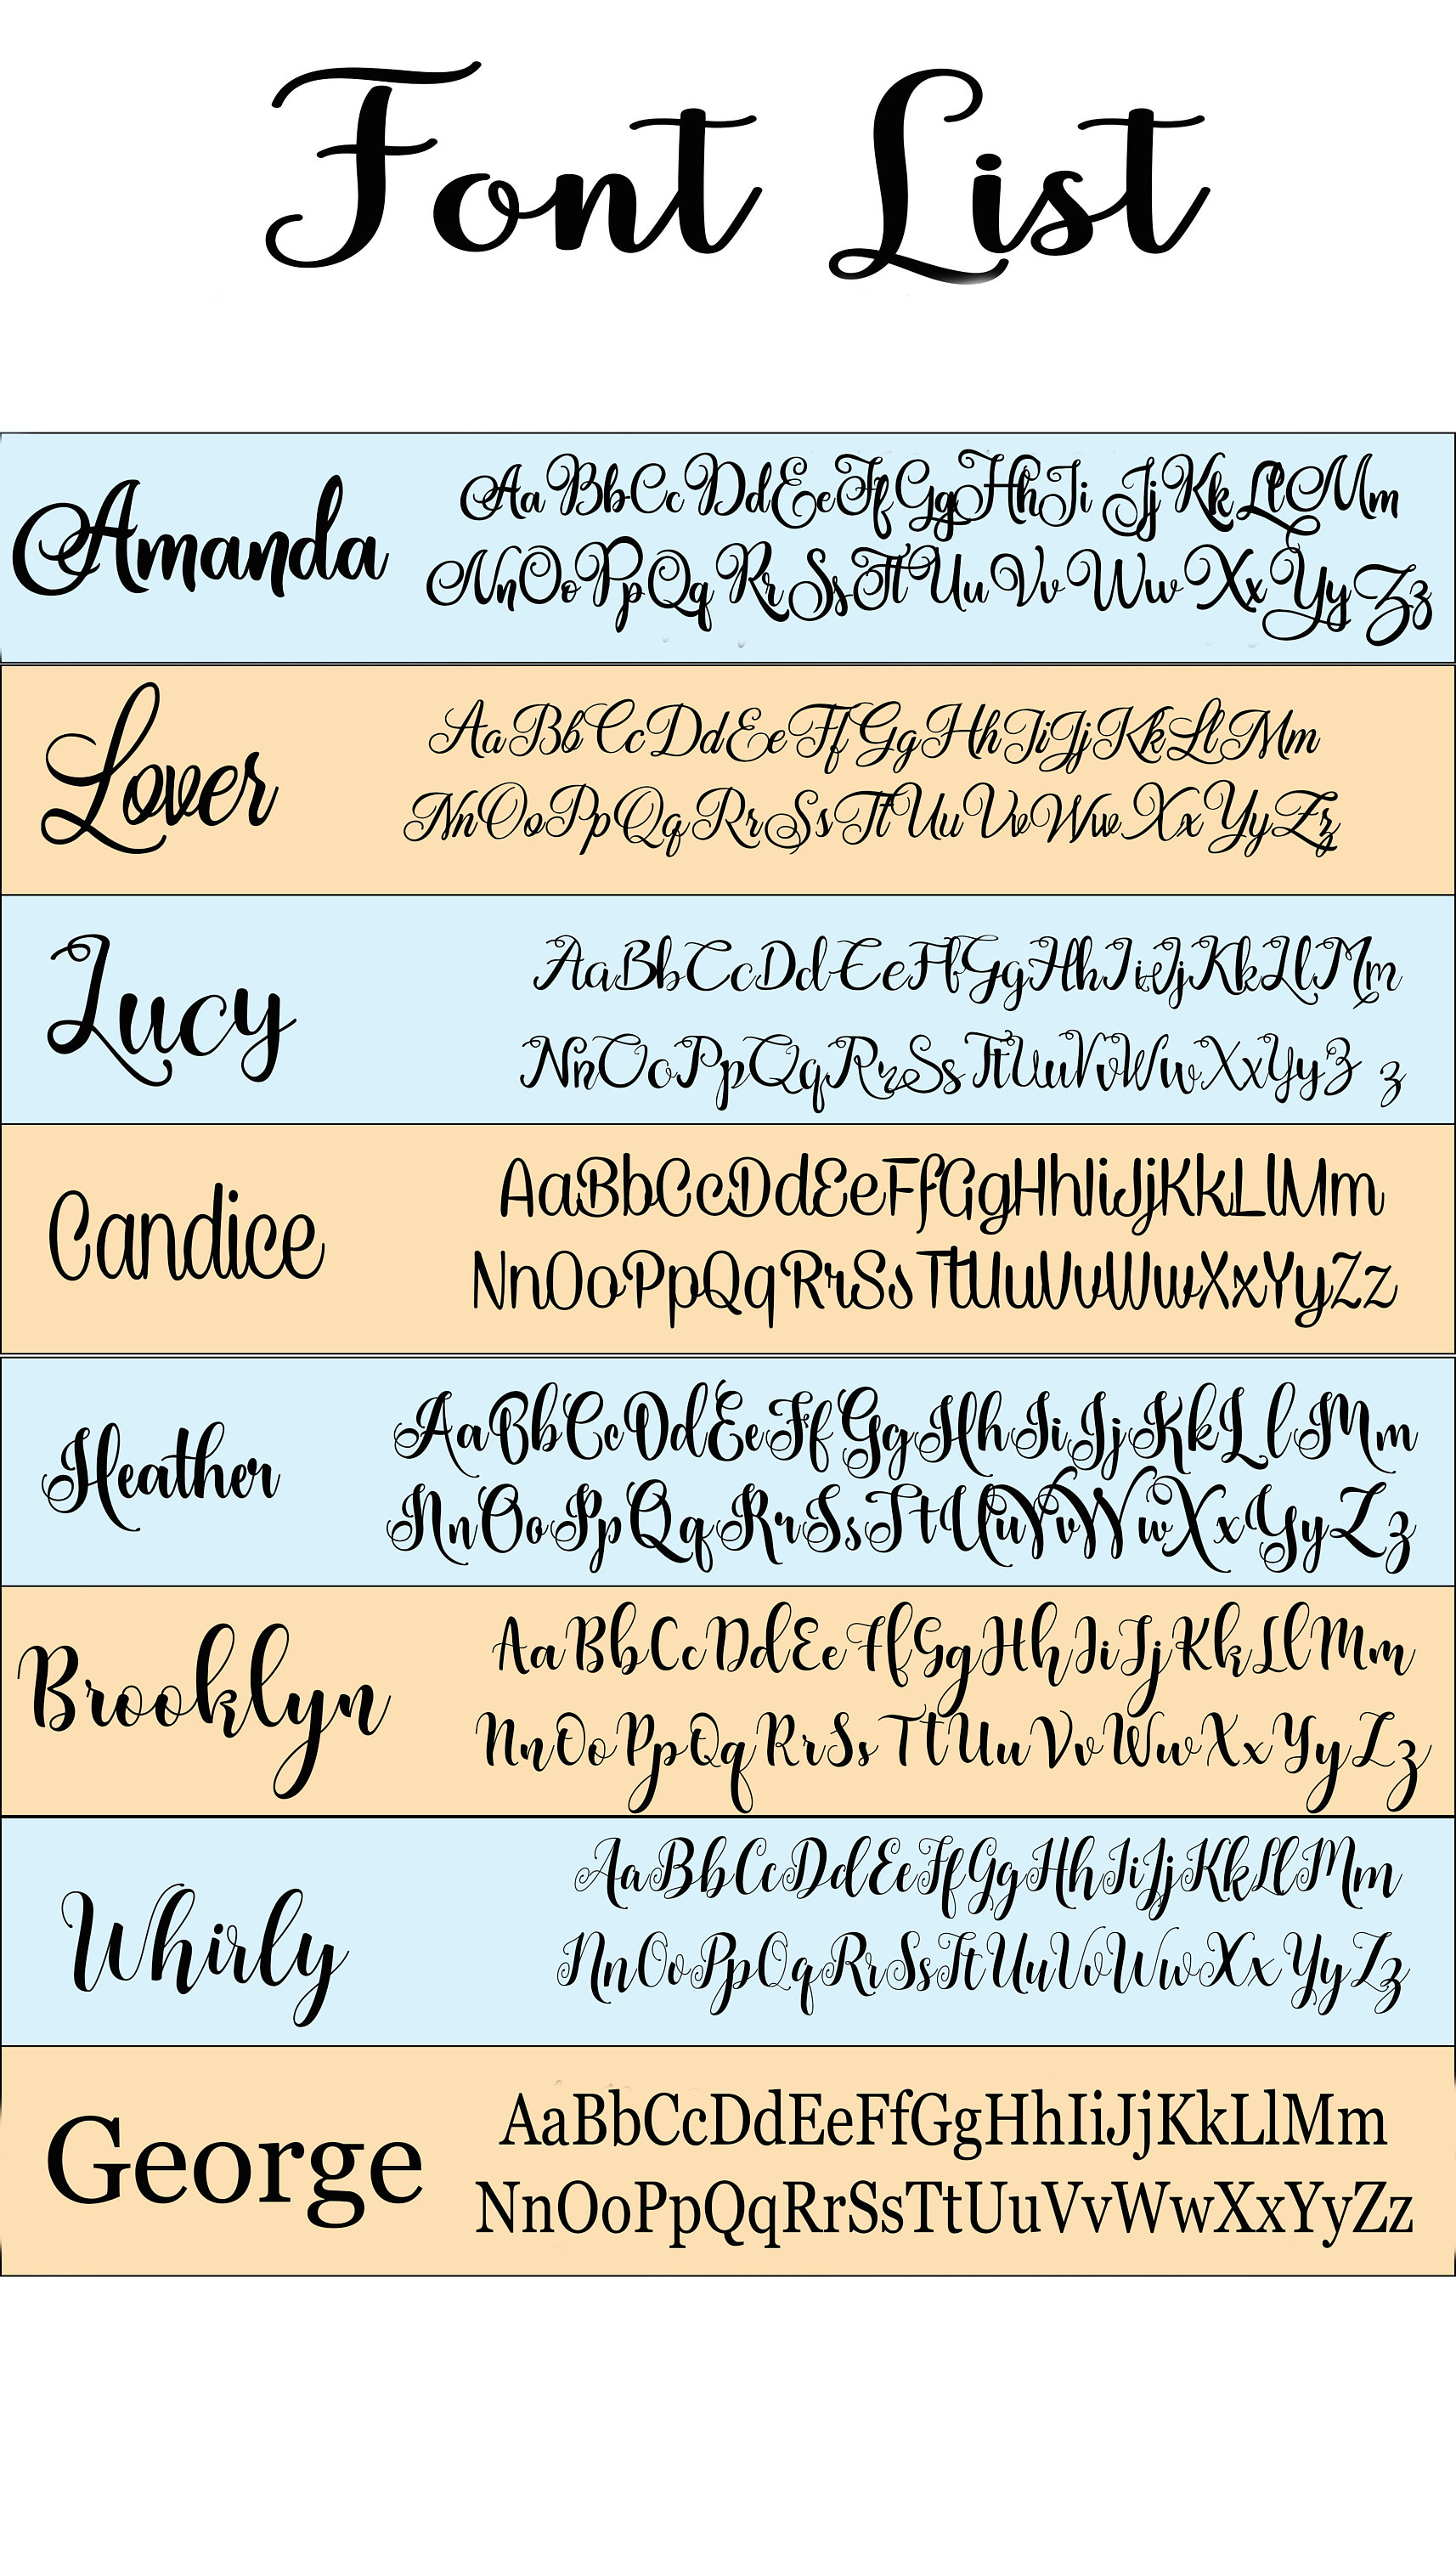 Font List
Amanda
AaBbCcDdEeFfGgHhIi JjKkLlMm
NnOoPpQqRrSsTtUuVvWwXxYyZz
Lover
AaBbCcDdEeFfGgHhIiJjKkLlMm
NnOoPpQqRrSsTtUuVvWwXxYyZz
Lucy
AaBbCcDdEeFfGgHhIiJjKkLlMm
NnOoPpQqRrSsTtUuVvWwXxYyZ z
Candice
AaBbCcDdEeFfGgHhIiJjKkLlMm
NnOoPpQqRrSsTtUuVvWwXxYyZz
Heather
AaBbCcDdEeFfGgHhIiJjKkL lMm
NnOoPpQqRrSsTtUuVvWwXxYyZz
Brooklyn
AaBbCcDdEeFfGgHhIiJjKkLlMm
NnOoPpQqRrSsTtUuVvWwXxYyZz
Whirly
AaBbCcDdEeFfGgHhIiJjKkLlMm
NnOoPpQqRrSsTtUuVvWwXxYyZz
George
AaBbCcDdEeFfGgHhIiJjKkLlMm
NnOoPpQqRrSsTtUuVvWwXxYyZz